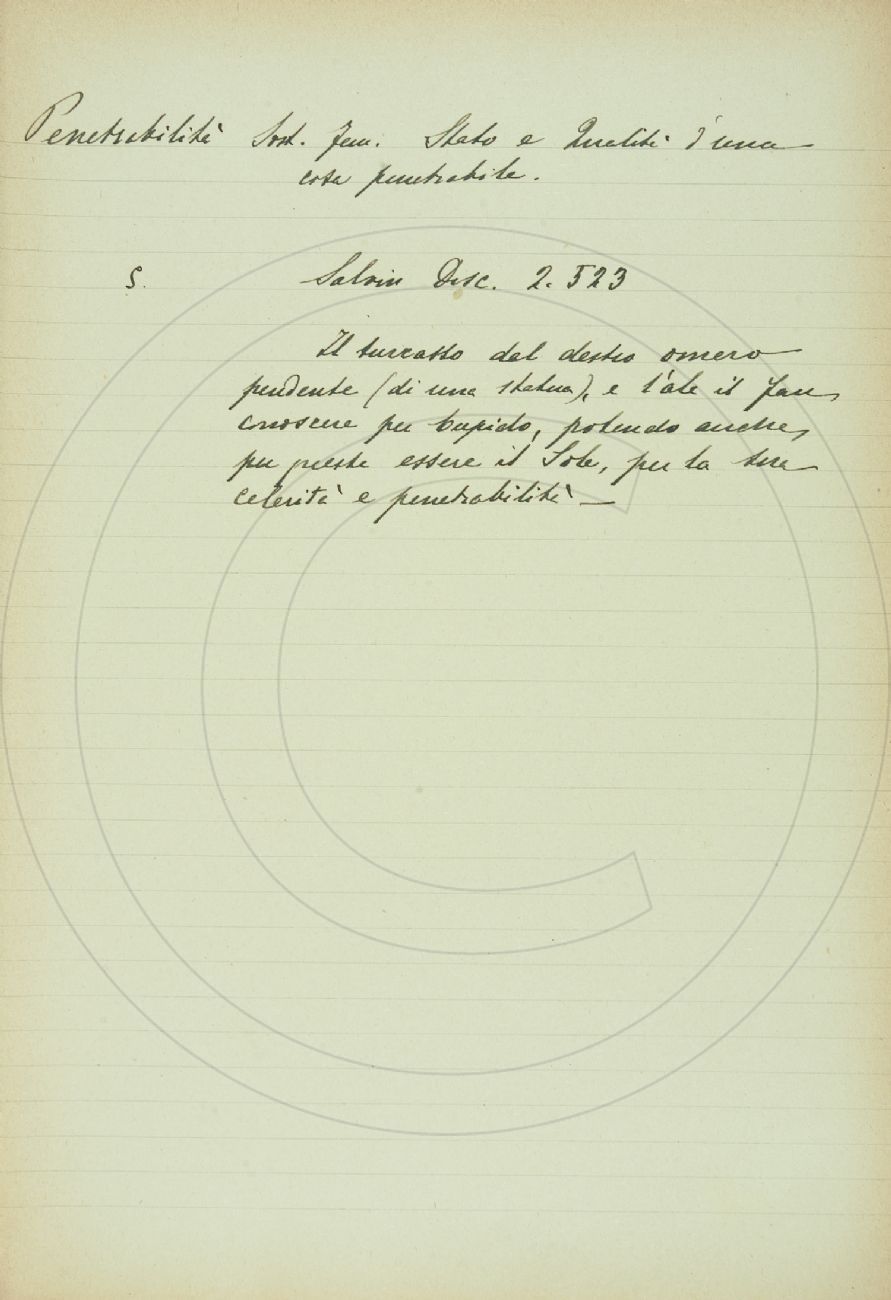 Penetrabilità Sost. fem. Stato e Qualità d'una
cosa penetrabile.
§. Salvin Disc. 2. 523
Il turcasso dal destro omero
pendente (di una statua), e l'ale il fan
conoscere per Cupido, potendo anche,
per queste essere il Sole, per la sua
celerità e penetrabilità —